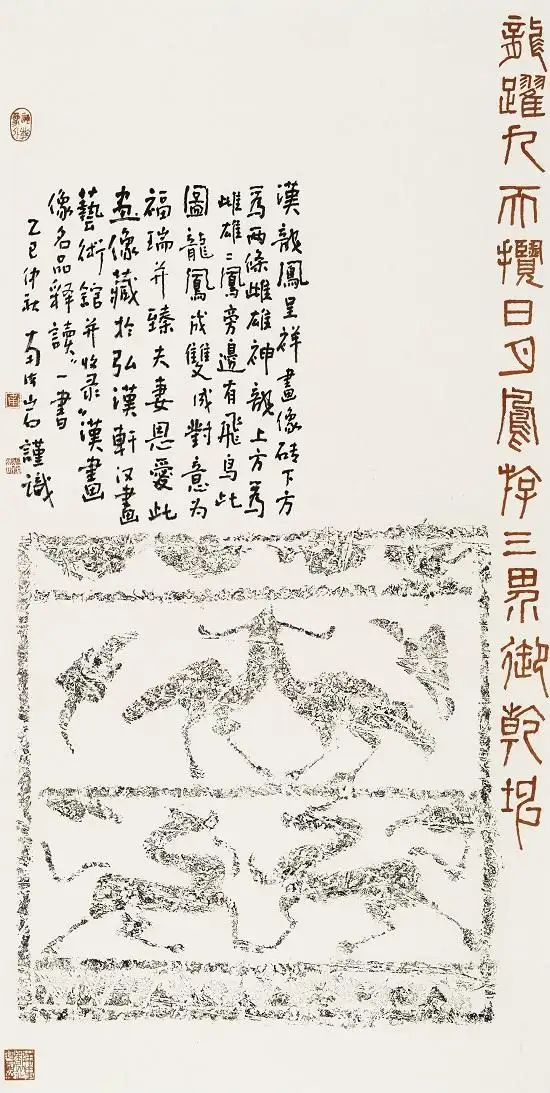 龍躍九天攬日月鳳游三界御乾坤
漢龍鳳呈祥畫像磚下方
為兩條雌雄神龍上方為
雌雄二鳳旁邊有飛鳥此
圖龍鳳成雙成對意为
福瑞并臻夫妻恩愛此
畫像藏於弘漢軒汉畫
藝術館并收录《漢畫
像名品释讀》一書
乙巳仲秋 岩謹識